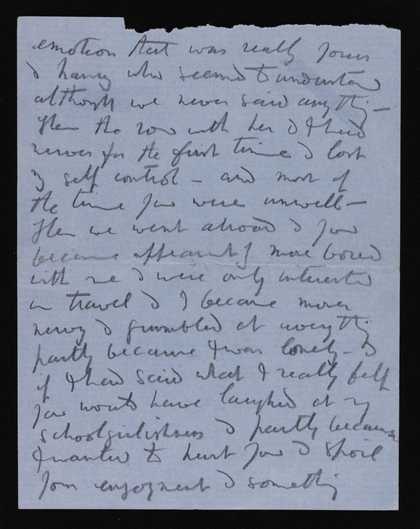 emotion that was really yours
& harry who seemed to understand
although we never said anything –
Then the row with her & I had
nerves for the first time & lost
my self control – and most of
the time you were unwell –
Then we went abroad & you
became apparently more bored
with me & were only interested
in travel & I became more
nervy & grumbled at everything
partly because I was lonely – &
if I had said what I really felt
you would have laughed at my
schoolgirlishness & partly because
I wanted to hurt you & spoil
your enjoyment & something